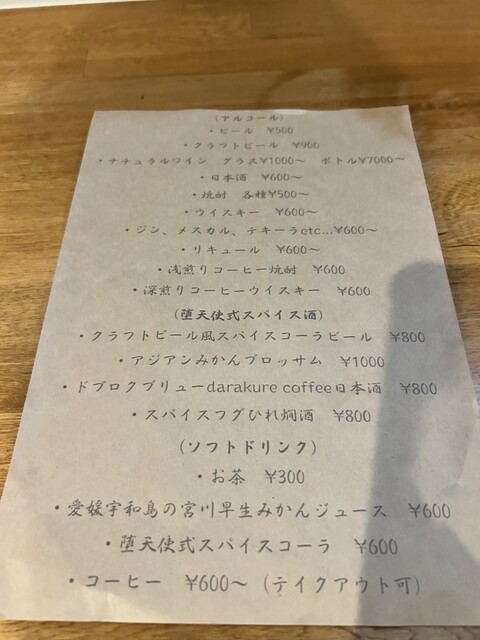 (アルコール)
・ビール ¥500
・クラフトビール ¥900
・ナチュラルワイン グラス¥1000〜 ボトル¥7000〜
・日本酒 ¥600〜
・焼酎 各種¥500〜
・ウイスキー ¥600〜
・ジン、メスカル、テキーラetc...¥600〜
・リキュール ¥600〜
・浅煎りコーヒー焼酎 ¥600
・深煎りコーヒーウイスキー ¥600
(堕天使式スパイス酒)
・クラフトビール風スパイスコーラビール ¥800
・アジアンみかんブロッサム ¥1000
・ドブロクブリューdarakure coffee日本酒 ¥800
・スパイスフグひれ燗酒 ¥800
(ソフトドリンク)
・お茶 ¥300
・愛媛宇和島の宮川早生みかんジュース ¥600
・堕天使式スパイスコーラ ¥600
・コーヒー ¥600〜 (テイクアウト可)